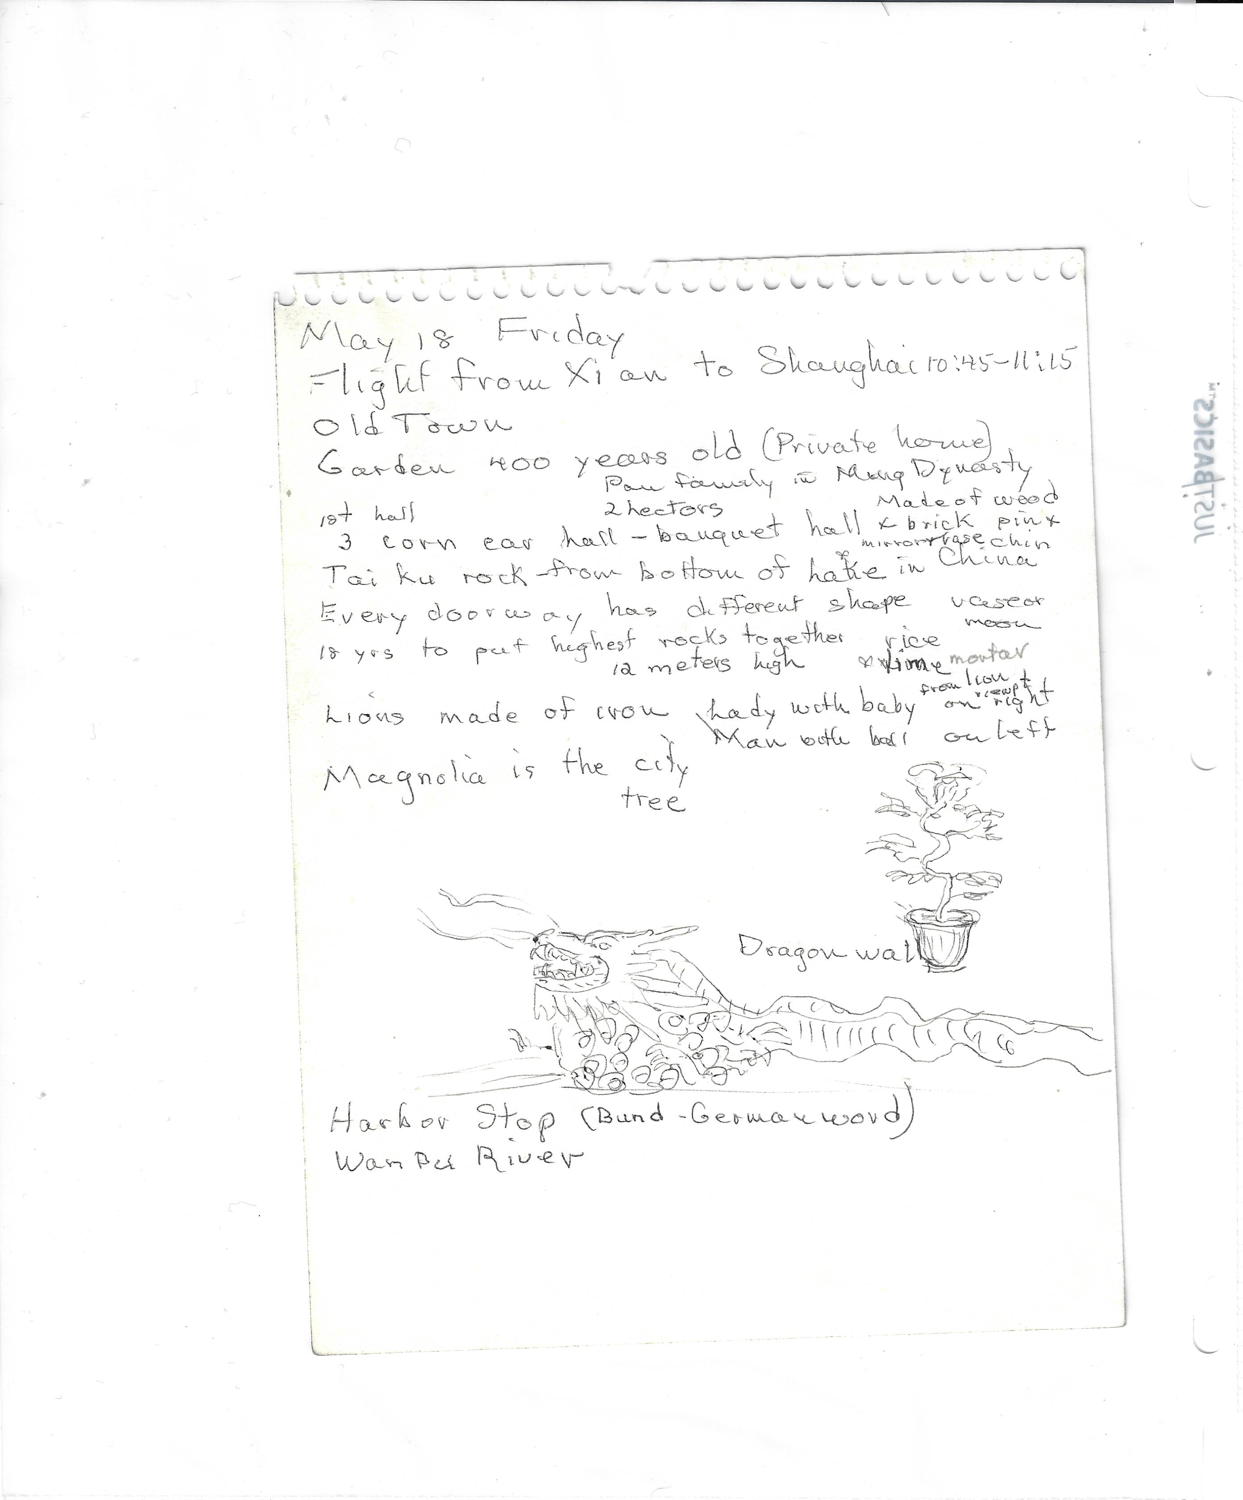 May 18 Friday
Flight from Xian to Shanghai 10:45-11:15
Old Town
Garden 400 years old (Private home)
Pan family in Ming Dynasty
1st hall 2 hectors Made of wood
3 corn ear hall - banquet hall & brick pin x
mirror vase chin
Tai Ku rock - from bottom of lake in China
Every doorway has different shape vase or
moon
18 yrs to put highest rocks together rice
12 meters high & lime mortar
from lion
viewpt
Lions made of iron Lady with baby on right
Man with ball on left
Magnolia is the city
tree
Dragon wall
Harbor Stop (Bund - German word)
Wan Pu River
JUSTBASICS™